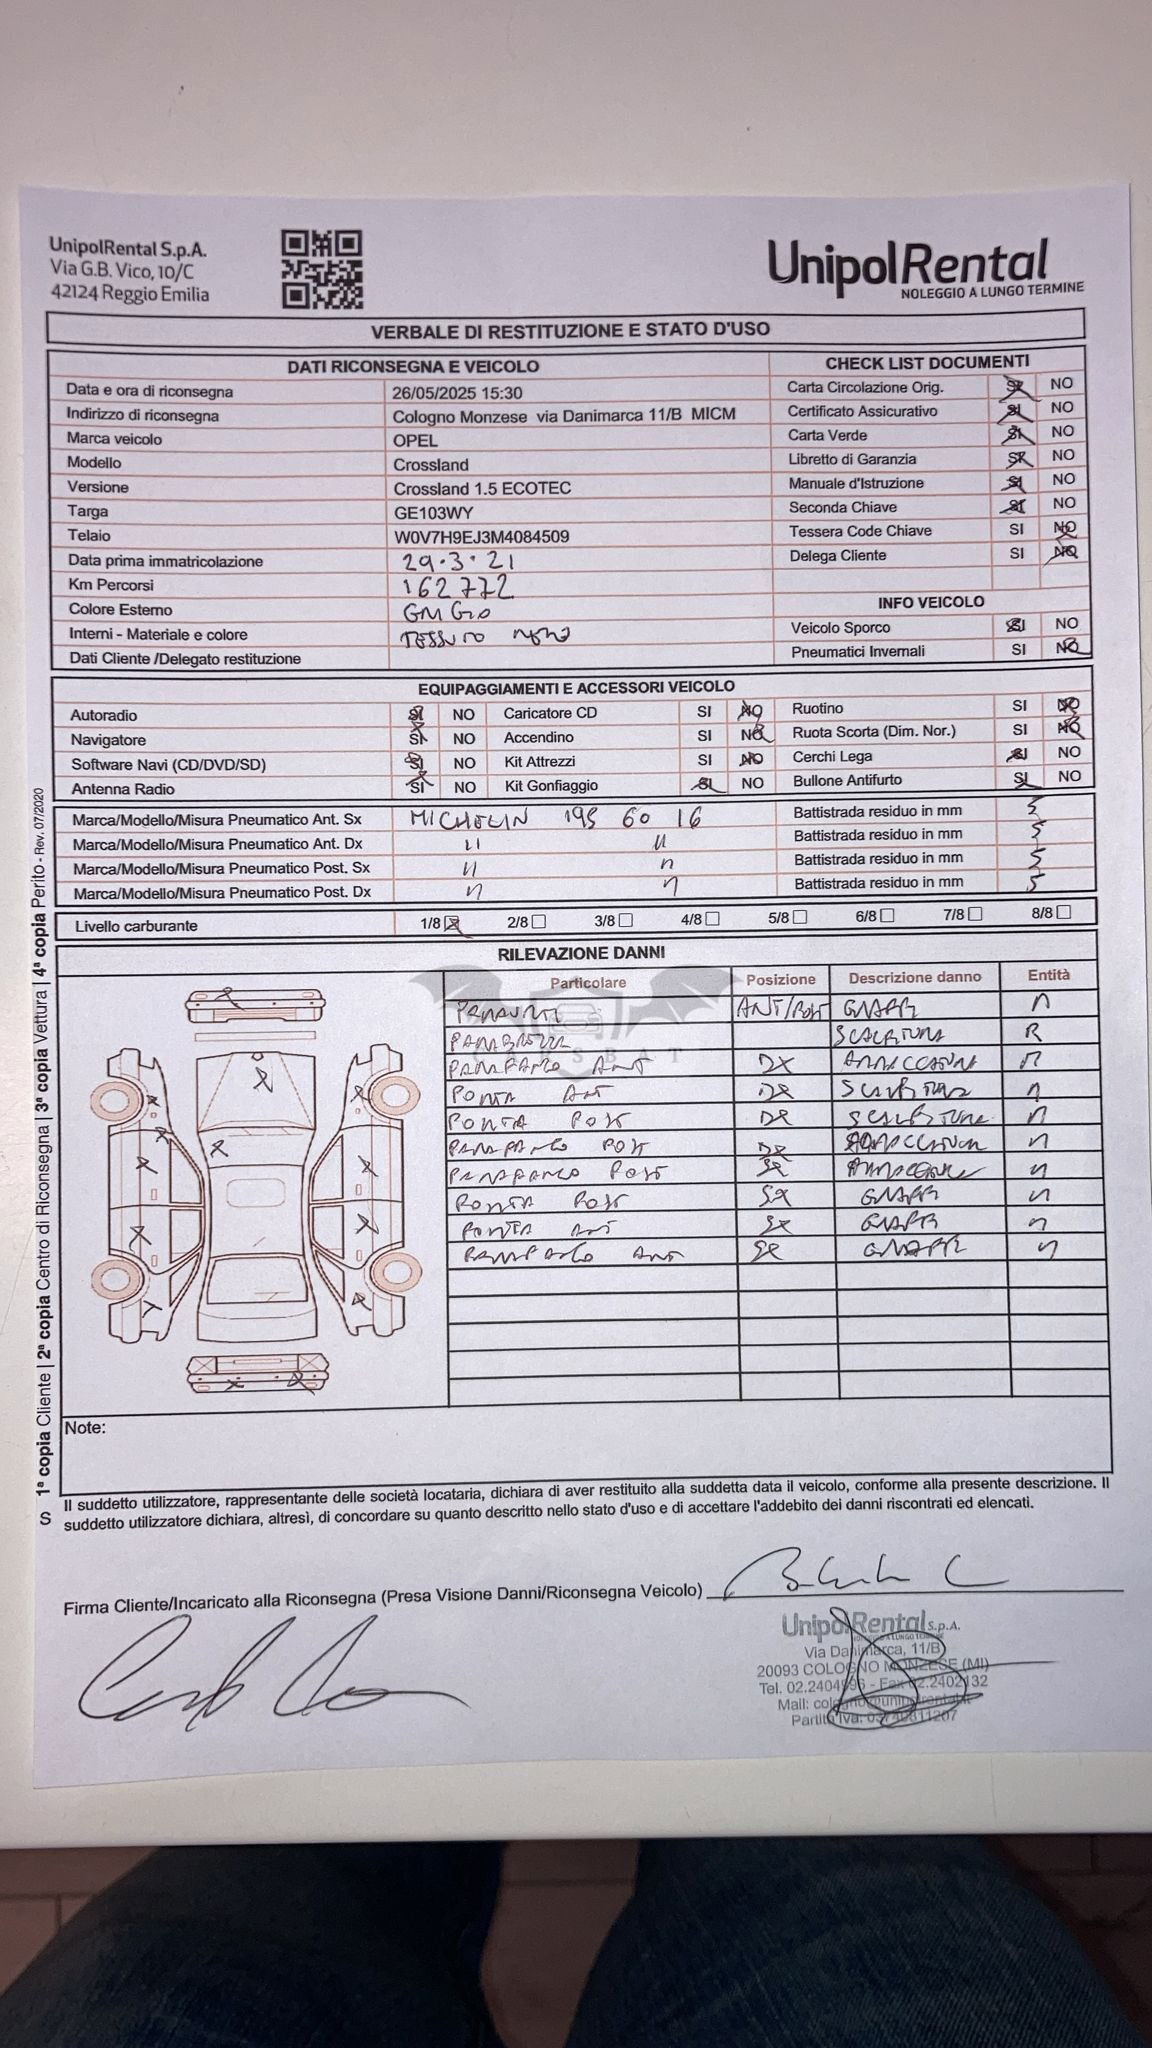 UnipolRental S.p.A.
Via G.B. Vico, 10/C
42124 Reggio Emilia
UnipolRental
NOLEGGIO A LUNGO TERMINE
VERBALE DI RESTITUZIONE E STATO D'USO
DATI RICONSEGNA E VEICOLO
Data e ora di riconsegna 26/05/2025 15:30
Indirizzo di riconsegna Cologno Monzese via Danimarca 11/B MICM
Marca veicolo OPEL
Modello Crossland
Versione Crossland 1.5 ECOTEC
Targa GE103WY
Telaio W0V7H9EJ3M4084509
Data prima immatricolazione 29.3.21
Km Percorsi 162772
Colore Esterno
Interni - Materiale e colore TESSUTO NERO
Dati Cliente /Delegato restituzione
CHECK LIST DOCUMENTI
Carta Circolazione Orig. SI NO
Certificato Assicurativo SI NO
Carta Verde SI NO
Libretto di Garanzia SI NO
Manuale d'Istruzione SI NO
Seconda Chiave SI NO
Tessera Code Chiave SI NO
Delega Cliente SI NO
INFO VEICOLO
Veicolo Sporco SI NO
Pneumatici Invernali SI NO
EQUIPAGGIAMENTI E ACCESSORI VEICOLO
Autoradio SI NO Caricatore CD SI NO Ruotino SI NO
Navigatore SI NO Accendino SI NO Ruota Scorta (Dim. Nor.) SI NO
Software Navi (CD/DVD/SD) SI NO Kit Attrezzi SI NO Cerchi Lega SI NO
Antenna Radio SI NO Kit Gonfiaggio SI NO Bullone Antifurto SI NO
Marca/Modello/Misura Pneumatico Ant. Sx MICHELIN 195 60 16 Battistrada residuo in mm 5
Marca/Modello/Misura Pneumatico Ant. Dx " " Battistrada residuo in mm 5
Marca/Modello/Misura Pneumatico Post. Sx " " Battistrada residuo in mm 5
Marca/Modello/Misura Pneumatico Post. Dx " " Battistrada residuo in mm 5
Livello carburante 1/8 2/8 3/8 4/8 5/8 6/8 7/8 8/8
RILEVAZIONE DANNI
Particolare Posizione Descrizione danno Entità
PARAURTI ANT/POST GRAFFI
CARSBAT
PARAFANGO ANT DX
PORTA ANT DX
PORTA POST DX
PARAFANGO POST DX
PARAFANGO POST SX
PORTA POST SX GRAFFI
PORTA ANT SX GRAFFI
PARAFANGO ANT SX GRAFFI
Note:
Il suddetto utilizzatore, rappresentante delle società locataria, dichiara di aver restituito alla suddetta data il veicolo, conforme alla presente descrizione. Il
suddetto utilizzatore dichiara, altresì, di concordare su quanto descritto nello stato d'uso e di accettare l'addebito dei danni riscontrati ed elencati.
Firma Cliente/Incaricato alla Riconsegna (Presa Visione Danni/Riconsegna Veicolo)
UnipolRental S.p.A.
Via Danimarca, 11/B
20093 COLOGNO MONZESE (MI)
Tel. Fax
Mail:
Partita Iva:
S 1ª copia Cliente | 2ª copia Centro di Riconsegna | 3ª copia Vettura | 4ª copia Perito - Rev. 07/2020